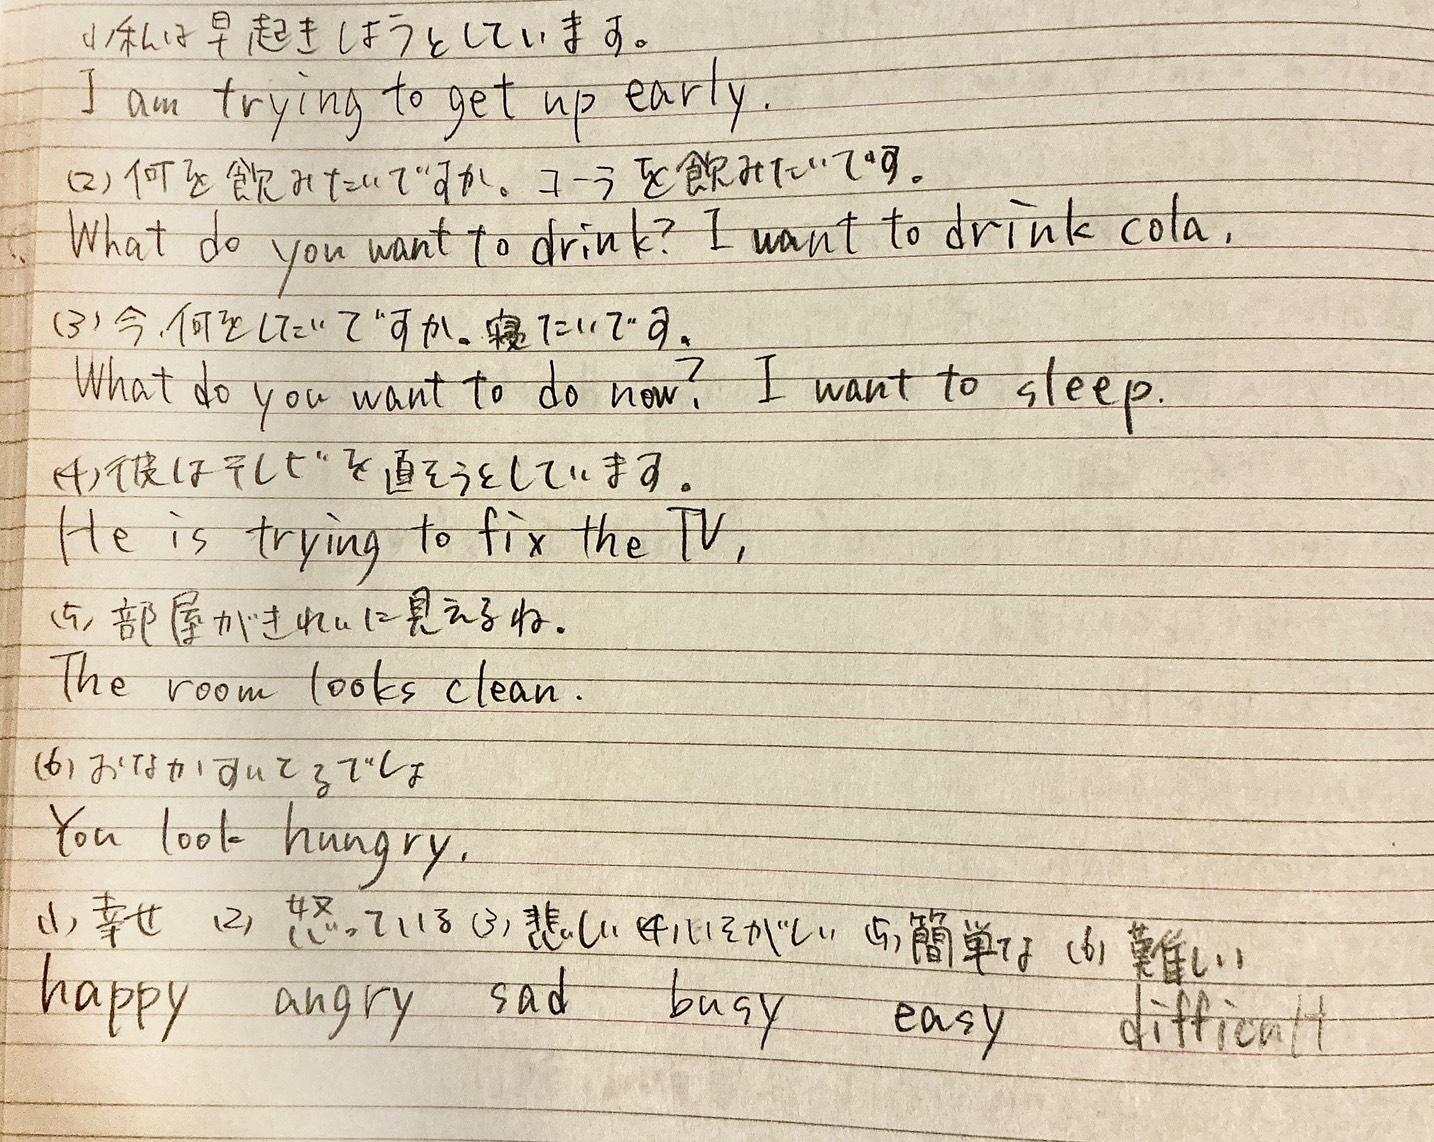 (1)私は早起きしようとしています。
I am trying to get up early.
(2)何を飲みたいですか。コーラを飲みたいです。
What do you want to drink? I want to drink cola.
(3)今、何をしたいですか。寝たいです。
What do you want to do now? I want to sleep.
(4)彼はテレビを直そうとしています。
He is trying to fix the TV.
(5)部屋がきれいに見えるね。
The room looks clean.
(6)おなかすいてるでしょ
You look hungry.
(1)幸せ (2)怒っている (3)悲しい (4)いそがしい (5)簡単な (6)難しい
happy angry sad busy easy difficult